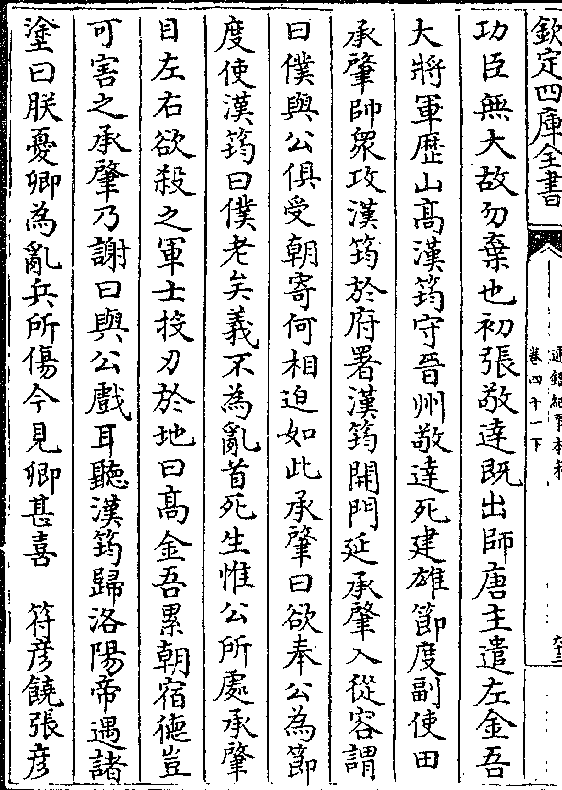 欽定四庫全書
通鑑紀事本末
卷四十一下
功臣無大故勿棄也初張敬達既出師唐主遣左金吾
大將軍歴山髙漢筠守晉州敬達死建雄節度副使田
承肇帥衆攻漢筠於府署漢筠開門延承肇入從容謂
曰僕與公俱受朝寄何相迫如此承肇曰欲奉公為節
度使漢筠曰僕老矣義不為亂首死生惟公所處承肇
目左右欲殺之軍士投刃於地曰髙金吾累朝宿徳豈
可害之承肇乃謝曰與公戲耳聽漢筠歸洛陽帝遇諸
塗曰朕憂卿為亂兵所傷今見卿甚喜　符彦饒張彦